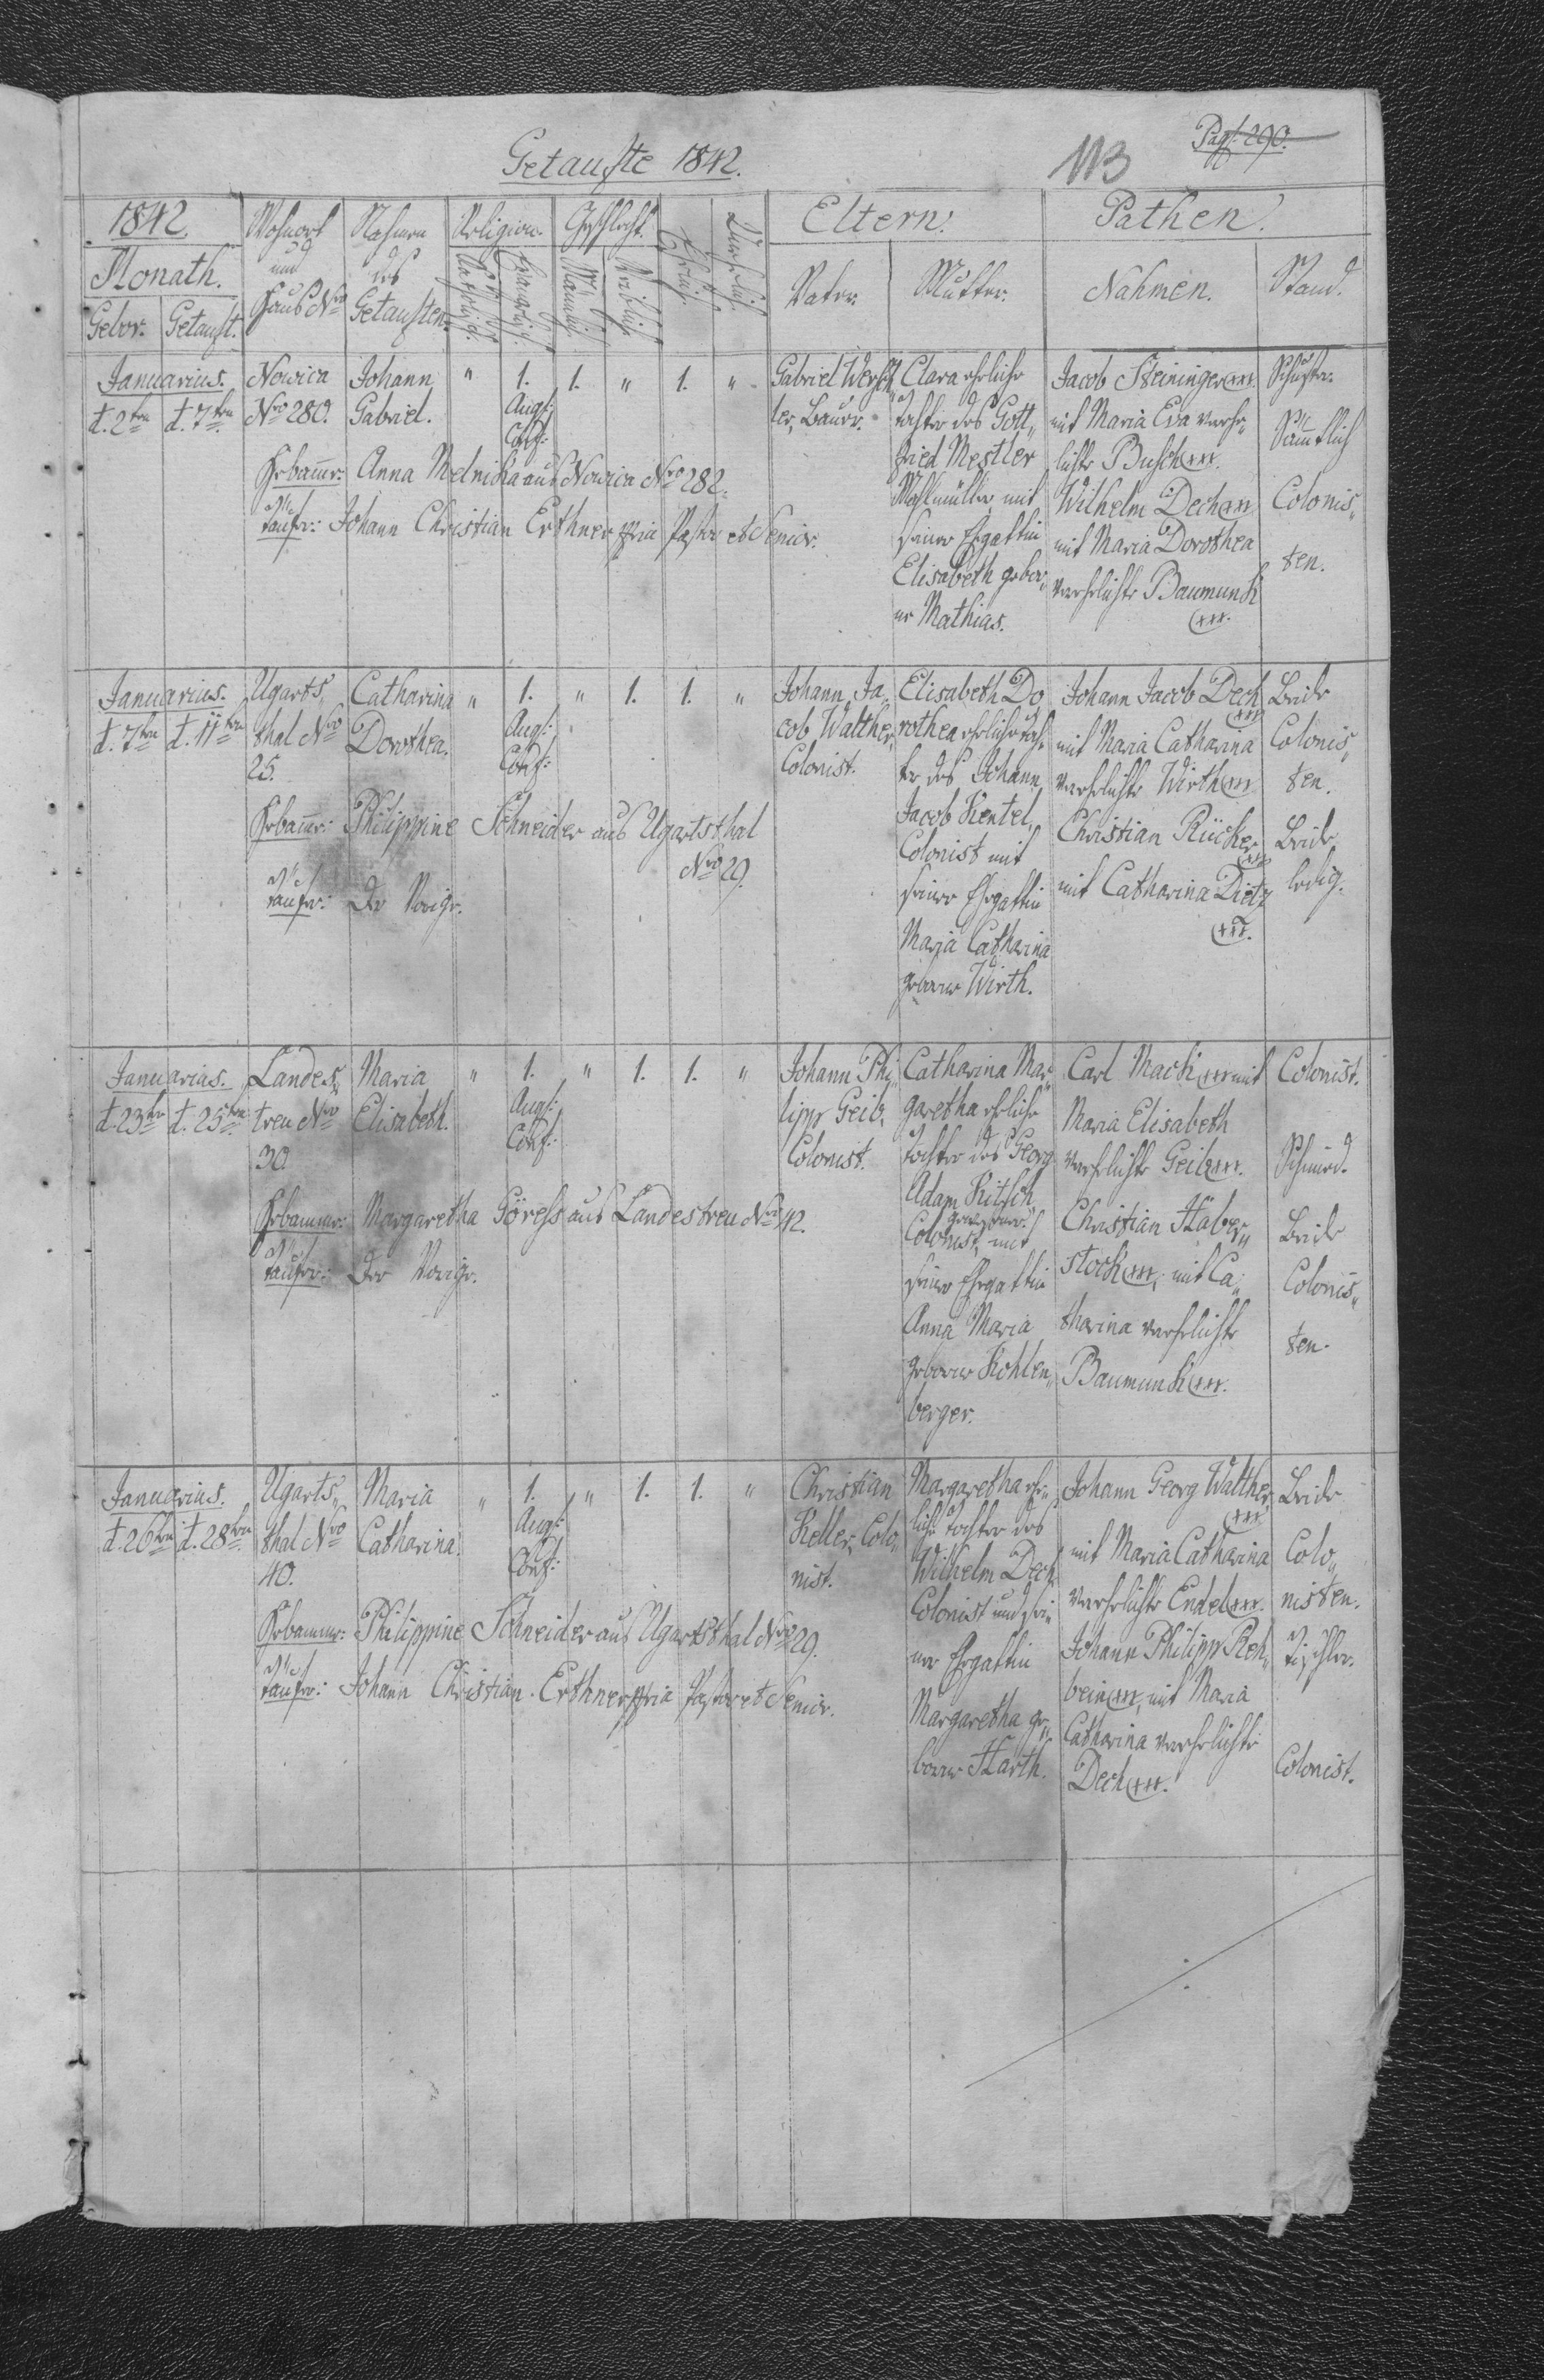 Getaufte 1842.
113
Pag: 290.
1842.
Monath.
Gebor. Getauft.
Wohnort
und
Haus Nro
Nahmen
des
Getauften.
Religion.
Katholisch.
Evangelisch.
Geschlecht.
Männlich.
Weiblich.
Ehelich.
Unehelich.
Eltern.
Vater.
Mutter.
Pathen.
Nahmen.
Stand.
Januarius.
d. 2ten d. 7ten
Nowica
Nro 280.
Johann
Gabriel.
" 1. 1. " 1. "
Augs:
Conf:
Gabriel
ter, Bauer.
Clara eheliche
Tochter des Gott„
fried Mestler
Mahlmüller mit
seiner Ehegattin
Elisabeth gebor„
ne Mathias.
Jacob Steininger xxx
mit Maria Eva vereh„
lichte Busch xxx.
Wilhelm Dech xxx
mit Maria Dorothea
verehlichte Baumunk
xxx.
Schuster.
Sämtlich
Colonis„
ten.
Hebamme: Anna Melnika aus Nowica Nro 282.
Taufer: Johann Christian Erthner mpria Pastor et Senior.
Januarius.
d. 7ten d. 11ten
Ugarts„
thal Nro
25.
Catharina
Dorothea.
" 1. " 1. 1. "
Augs:
Conf:
Johann Ja„
cob Walther,
Colonist.
Elisabeth Do
rothea eheliche Toch„
ter des Johann
Jacob Kentel,
Colonist mit
seiner Ehegattin
Maria Catharina
geborne Wirth.
Johann Jacob Dech
xxx
mit Maria Catharina
verehlichte Wirth xxx
Christian Rücker
xxx
mit Catharina Dietz
xxx.
Beide
Colonis„
ten.
Beide
ledig.
Hebamme: Philippine Schneider aus Ugartsthal
Nro 29.
Taufer: Der Vorige.
Januarius.
d. 23ten d. 25ten
Landes„
treu Nro
30
Maria
Elisabeth.
" 1. " 1. 1. "
Augs:
Conf:
Johann Phi„
lipp Geib,
Colonist.
Catharina Mar„
garetha eheliche
Tochter des Georg
Adam Kitsch
Colonist, mit
seiner Ehegattin
Anna Maria
geborne Kohlen„
berger.
Carl Mack xxx mit
Maria Elisabeth
verehlichte Geib xxx.
Christian Haber„
stock xxx, mit Ca„
tharina verehlichte
Baumunk xxx.
Colonist.
Schmied.
Beide
Colonis„
ten.
Hebamme: Margaretha Göress aus Landestreu Nro 42.
Taufer: Der Vorige.
Januarius.
d. 26ten d. 28ten
Ugarts„
thal Nro
40.
Maria
Catharina.
" 1. " 1. 1. "
Augs:
Conf:
Christian
Keller, Colo„
nist.
Margaretha ehe„
liche Tochter des
Wilhelm Dech
Colonist und sei„
ner Ehegattin
Margaretha ge„
borne Harth.
Johann Georg Walther
xxx
mit Maria Catharina
verehlichte Endel xxx.
Johann Philipp Reh„
bein xxx, mit Maria
Catharina verehlichte
Dech xxx.
Beide
Colo„
nisten.
Tischler.
Colonist.
Hebamme: Philippine Schneider aus Ugartsthal Nro 29.
Taufer: Johann Christian Erthner mpria Pastor et Senior.